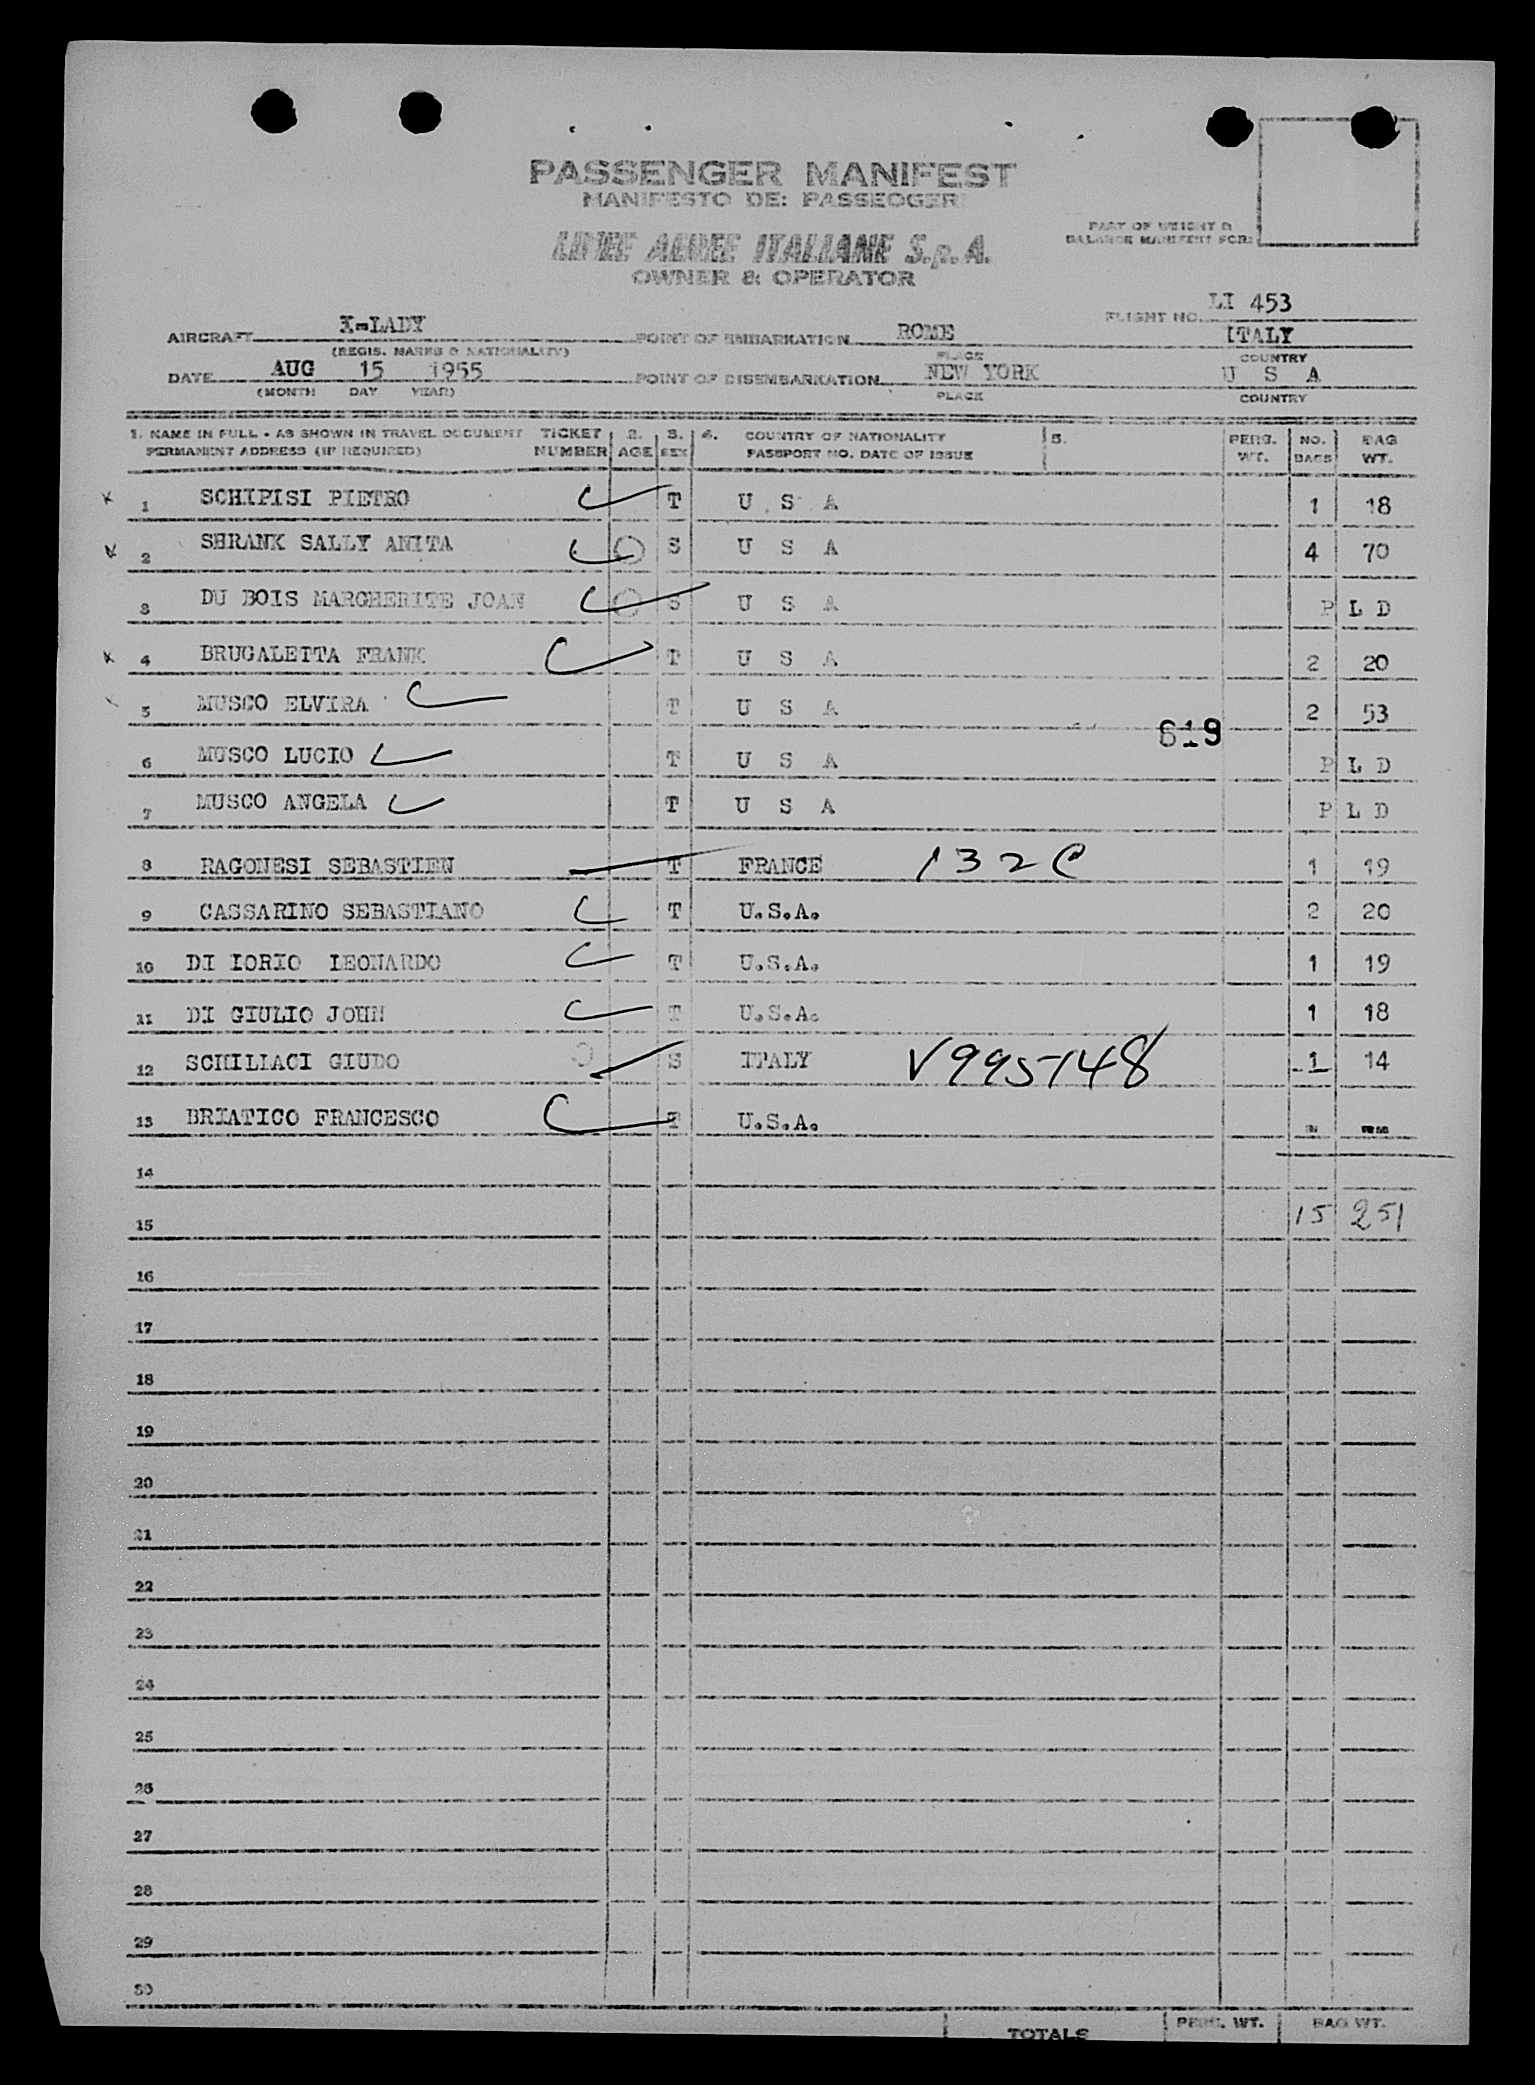 PASSENGER MANIFEST
MANIFESTO DE: PASSEOGERI
LINEE AEREE ITALIANE S.p.A.
OWNER & OPERATOR
PART OF WEIGHT &
BALANCE MANIFEST FOR:
FLIGHT NO. LI 453
AIRCRAFT X-LADY POINT OF EMBARKATION ROME ITALY
(REGIS. MARKS & NATIONALITY) PLACE COUNTRY
DATE AUG 15 1955 POINT OF DISEMBARKATION NEW YORK U S A
(MONTH DAY YEAR) PLACE COUNTRY
1. NAME IN FULL - AS SHOWN IN TRAVEL DOCUMENT TICKET 2. 3. 4. COUNTRY OF NATIONALITY 5. PERS. NO. BAG
PERMANENT ADDRESS (IF REQUIRED) NUMBER AGE SEX PASSPORT NO. DATE OF ISSUE WT. BAGS WT.
1 SCHIPISI PIETRO T U S A 1 18
2 SHRANK SALLY ANITA S U S A 4 70
3 DU BOIS MARGHERITE JOAN S U S A P L D
4 BRUGALETTA FRANK T U S A 2 20
5 MUSCO ELVIRA T U S A 2 53
619
6 MUSCO LUCIO T U S A P L D
7 MUSCO ANGELA T U S A P L D
8 RAGONESI SEBASTIEN T FRANCE 132C 1 19
9 CASSARINO SEBASTIANO T U.S.A. 2 20
10 DI IORIO LEONARDO T U.S.A. 1 19
11 DI GIULIO JOHN T U.S.A. 1 18
12 SCHILIACI GIUDO S ITALY V995148 1 14
13 BRIATICO FRANCESCO T U.S.A.
14
15 15 251
16
17
18
19
20
21
22
23
24
25
26
27
28
29
30
TOTALS PERS. WT. BAG WT.